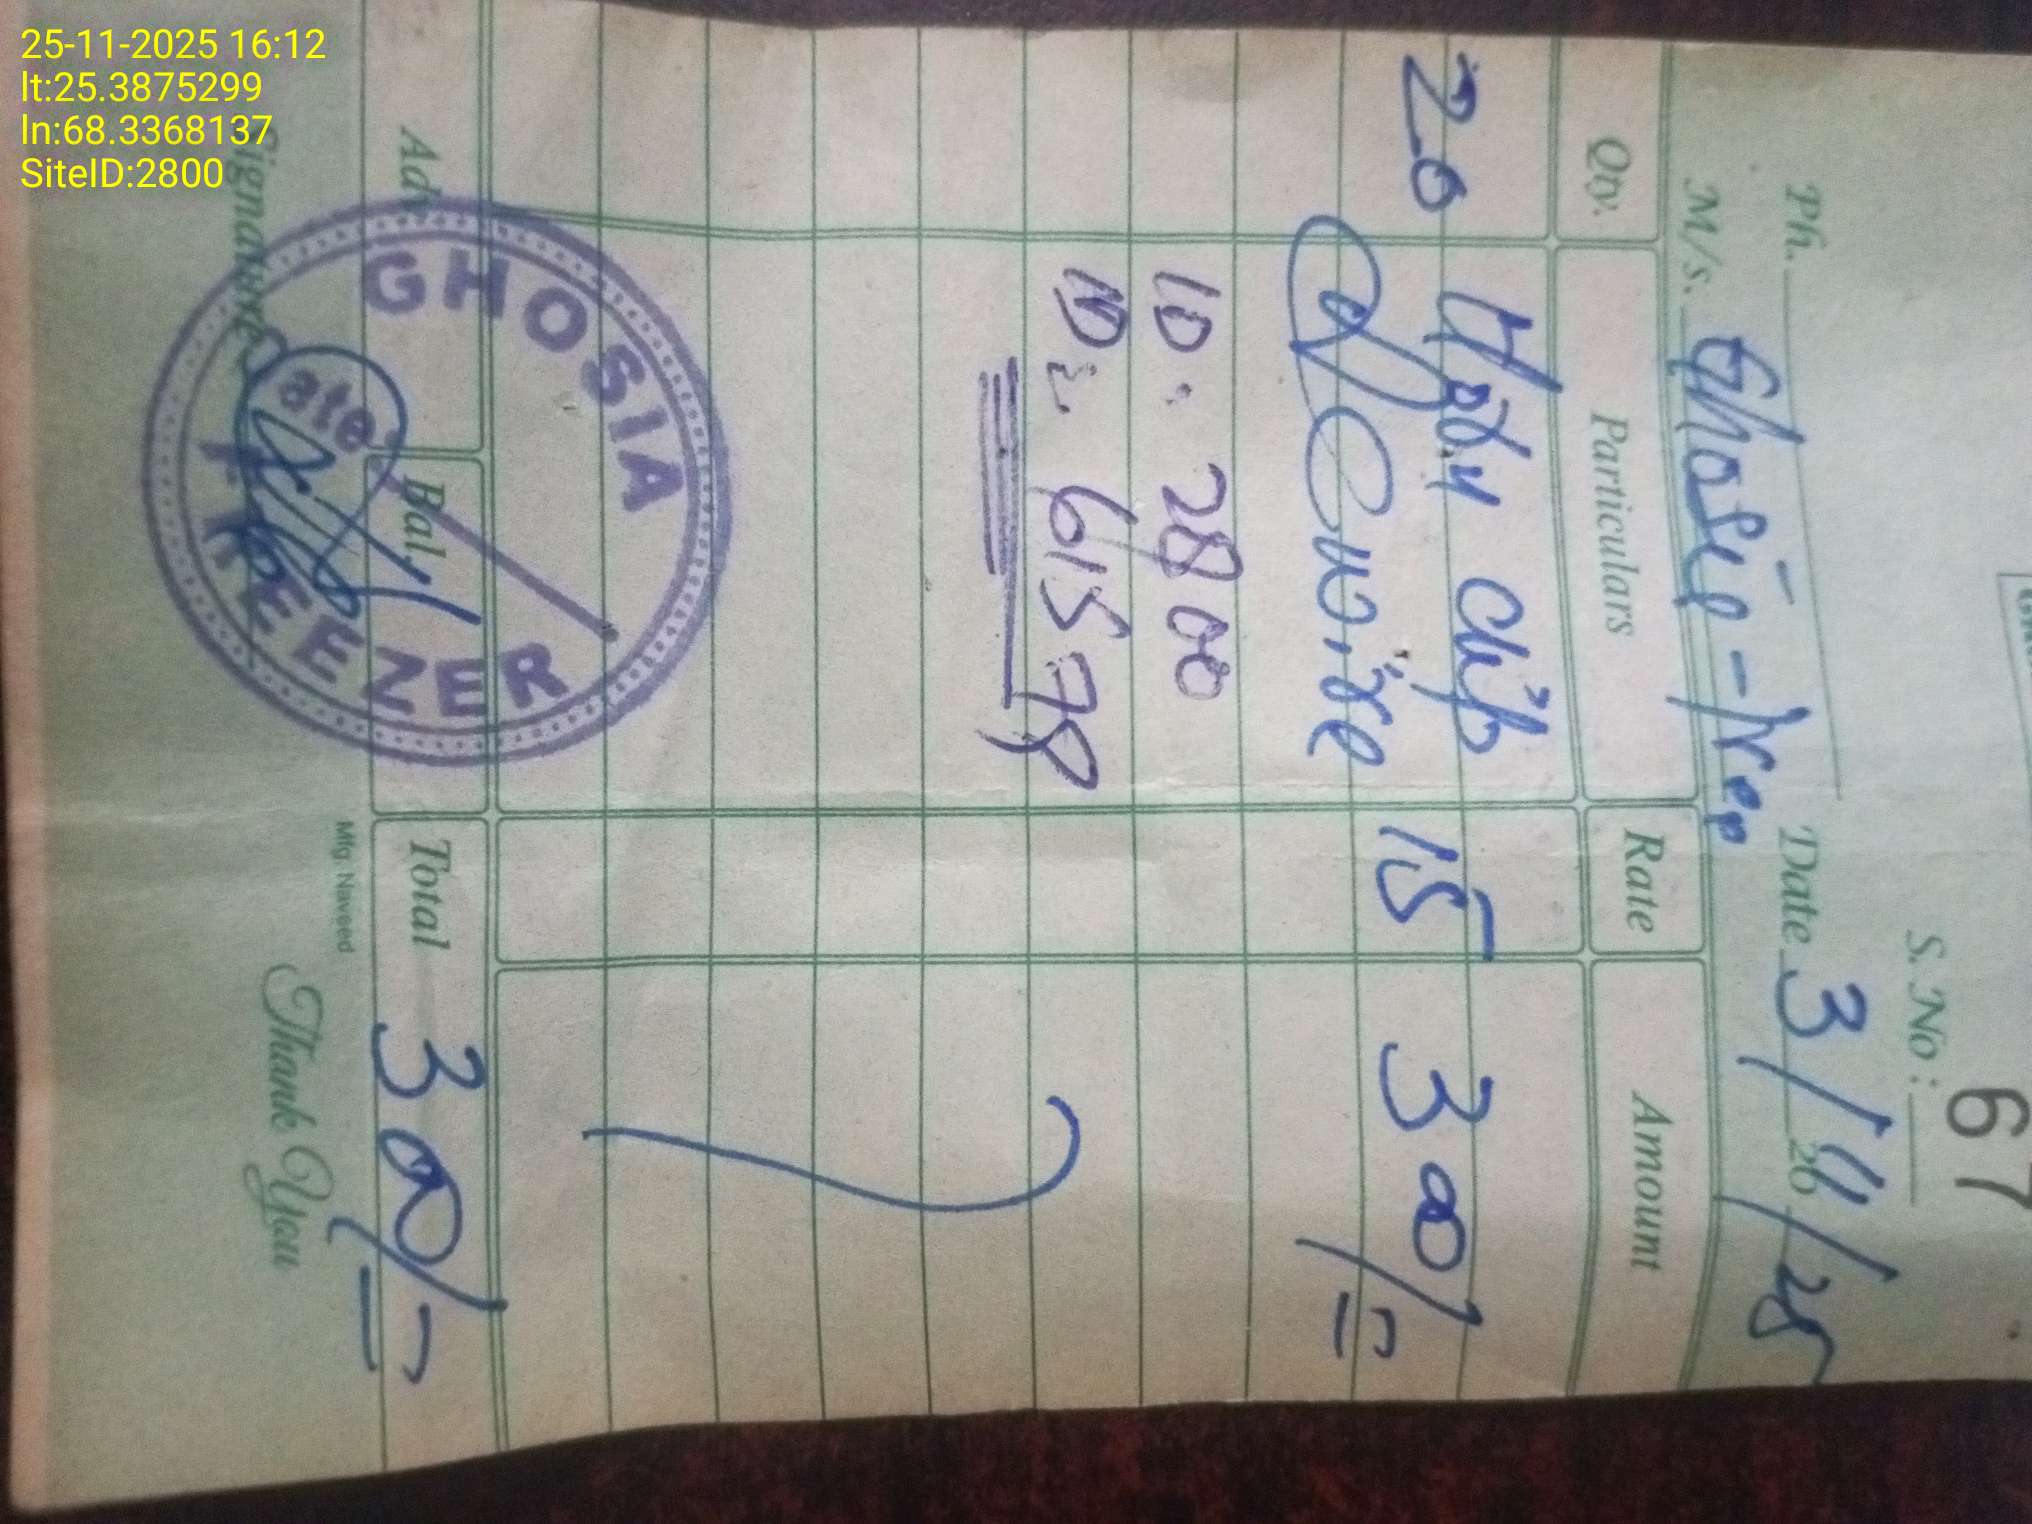 25-11-2025 16:12
lt:25.3875299
ln:68.3368137
SiteID:2800
S. No : 67
Ph. Date 3/11/25 20
M/s.
Qty. Particulars Rate Amount
20 15 300/=
ID. 2800
ID: 61578
Adv. Bal. Total 300/=
GHOSIA FREEZER
Date
Signature Thank You
Mfg. Naveed